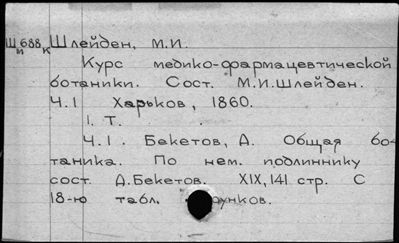 Ш 688 к Шлейден, М.И.
и
Курс медико-фармацевтической
ботаники. Сост. М.И.Шлейден.
Ч.1 Харьков, 1860.
1. Т.
Ч.1. Бекетов, А. Общая бо-
таника. По нем. подлиннику
сост. А.Бекетов. XIX,141 стр. С
18-ю табл.